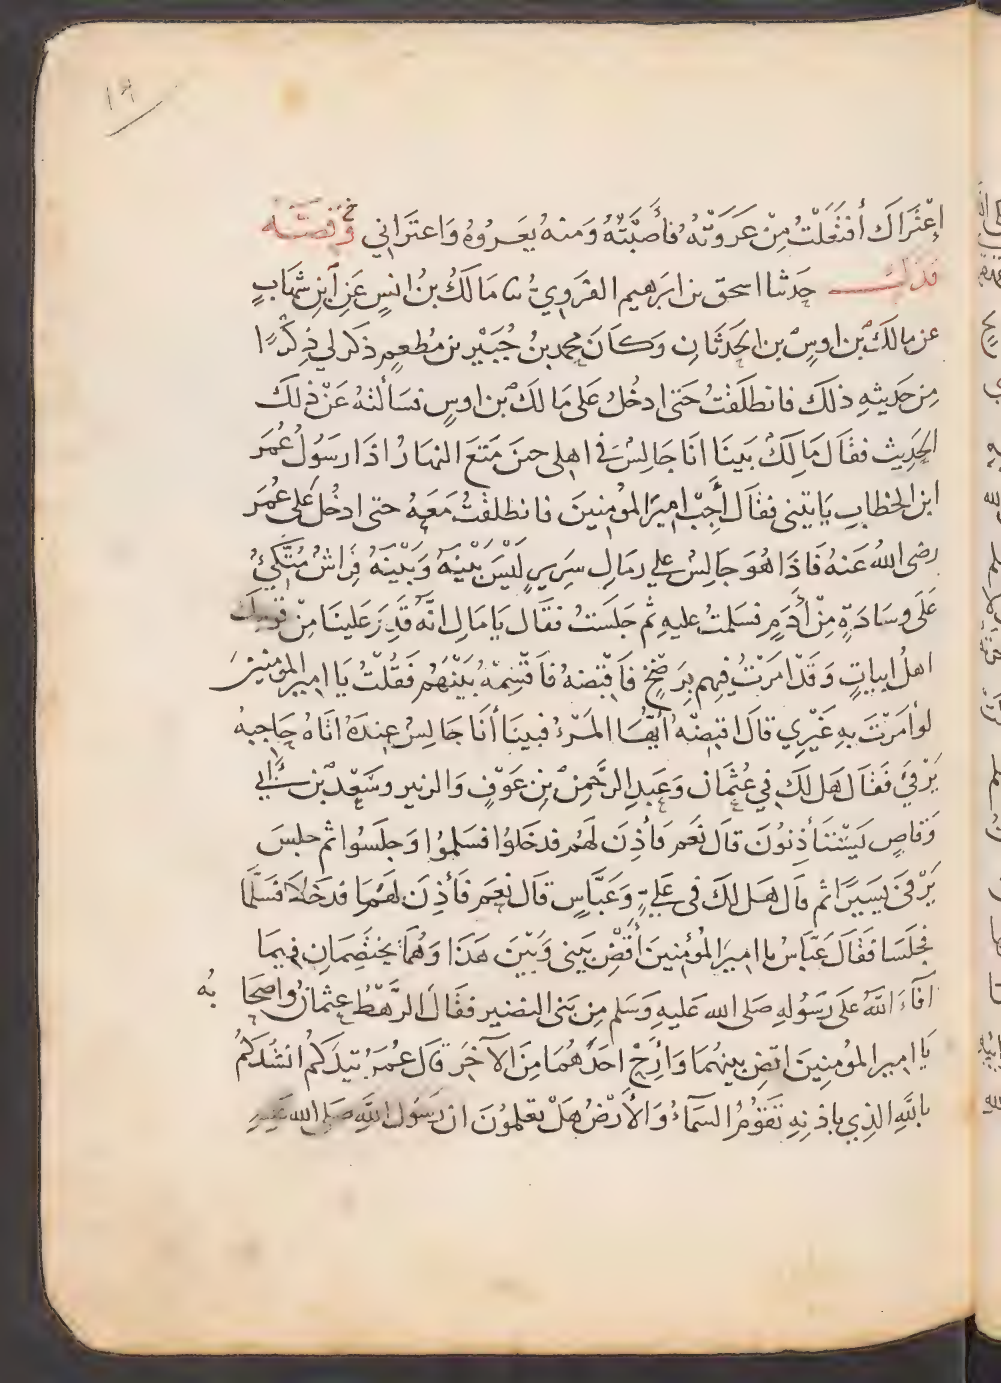 ١٩
إعْتَرَاكَ أفْتَعَلْتَ مِنْ عَرَوْتُهُ فَأَصَبْتُهُ وَمنهُ يَعرُوهُ وَاعتَرَاني وقصَّة
فدَك حَدثنا اسحق بن ابرَهيم الفَرَوِيُّ ثنا مَالكُ بنُ انَسٍ عَنِ ابنِ شِهَابٍ
عن مالكَ بن اوسٍ بن الحَدثَانِ وَكَانَ محمد بنُ جُبَيْر بن مُطعِمٍ ذكَر لي ذِكْرًا
مِن حَديثِهِ ذلكَ فانطلَقتُ حَتى ادخُلَ عَلى مَالكَ بن اوسٍ فسَألتهُ عَنْ ذلكَ
الحَدِيث فقَال مَالِكٌ بَينَا انَا جَالِسٌ في اهلى حينَ مَتعَ النهَارُ اذَا رَسُولُ عُمَرَ
ابن الخطابِ يَاتيني فقالَ أَجِبْ امِيرَ المؤمِنينَ فانطلَقْتُ مَعَهُ حتى ادخُلَ عَلى عُمَرَ
رضى اللهُ عَنهُ فَاذَا هُوَ جَالِسٌ على رمَالِ سَرِيرٍ لَيْسَ بَيْنَهُ وَبَيْنَهُ فِرَاشٌ مُتَّكِئٌ
عَلَى وسَادَةٍ مِنْ أَدَمٍ فسَلمتُ عليهِ ثم جَلَستُ فقَالَ يَا مَالِ انَّهُ قَدِمَ عَلينَا مِنْ قَومِكَ
اهلُ ابيَاتٍ وَقَدْ امَرْتُ فِيهِم بِرَضْخٍ فَاقْبِضهُ فَاقْسِمْهُ بَيْنَهُم فَقُلْتُ يَا امِير المومنينَ
لوْ امَرْتَ بهِ غَيْرِي قالَ اقبِضْهُ أيُّهَا المَرْءُ فبينَا أنَا جَالِسٌ عِندَهُ اتَاهُ حَاجبهُ
يَرْفَئُ فَقَالَ هَل لكَ في عُثمَانَ وَعَبدِ الرَّحمنِ بنِ عَوْفٍ وَالزبير وَسَعْدِ بن أبي
وَقاصٍ يَسْتَأذِنُونَ قالَ نَعَم فَأذِنَ لَهُم فدخَلوُا فسَلموُا وَجلَسُوا ثم جلسَ
يَرْفَئ يَسِيرًا ثم قال هَل لكَ في عَليٍّ وَعَبَّاسٍ قال نعَم فَأذِنَ لهُمَا فدخَلاَ فسَلَّمَا
فجَلَسَا فقَالَ عَبّاسٌ يا امِيرَ المُؤمِنِينَ أقْضِ بَيني وَبَيْنَ هَذَا وَهُمَا يَختَصِمَانِ فِيمَا
افَاءَ اللهُ عَلى رَسُولهِ صَلى الله عَليهِ وَسَلم مِن بَنى النضير فقَالَ الرَّهْطُ عثمانُ واصحَابُهُ
يَا امِير المؤمِنِينَ اقضِ بينهُمَا وَأرِحْ احَدَهُمَا مِنَ الآخَرِ قال عُمَرُ تَيدَكُم انشدكُم
باللهِ الذِي باذنهِ تَقوُمُ السَّمَاءُ وَالأرْضُ هَلْ تعلمُونَ ان رَسُول اللهِ صَلى الله عَليهِ